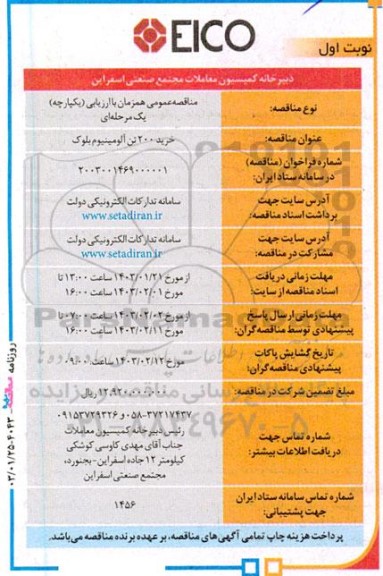 EICO
نوبت اول
دبیرخانه کمیسیون معاملات مجتمع صنعتی اسفراین
نوع مناقصه:
مناقصه عمومی همزمان با ارزیابی (یکپارچه)
یک مرحله‌ای
عنوان مناقصه:
خرید ۲۰۰ تن آلومینیوم بلوک
شماره فراخوان (مناقصه)
در سامانه ستاد ایران:
۲۰۰۳۰۰۱۴۶۹۰۰۰۰۰۱
آدرس سایت جهت
برداشت اسناد مناقصه:
سامانه تدارکات الکترونیکی دولت
www.setadiran.ir
آدرس سایت جهت
مشارکت در مناقصه:
سامانه تدارکات الکترونیکی دولت
www.setadiran.ir
مهلت زمانی دریافت
اسناد مناقصه از سایت:
از مورخ ۱۴۰۳/۰۱/۲۱ ساعت ۱۳:۰۰ تا
مورخ ۱۴۰۳/۰۲/۰۱ ساعت ۱۶:۰۰
مهلت زمانی ارسال پاسخ
پیشنهادی توسط مناقصه‌گران:
از مورخ ۱۴۰۳/۰۲/۰۲ ساعت ۰۷:۰۰ تا
مورخ ۱۴۰۳/۰۲/۱۱ ساعت ۱۶:۰۰
تاریخ گشایش پاکات
پیشنهادی مناقصه‌گران:
مورخ ۱۴۰۳/۰۲/۱۲ ساعت ۰۹:۰۰
مبلغ تضمین شرکت در مناقصه:
ریال
شماره تماس جهت
دریافت اطلاعات بیشتر:
۰۵۸-۳۷۲۱۷۴۳۷ و ۰۹۱۵۳۷۲۹۳۲۶
رئیس دبیرخانه کمیسیون معاملات
جناب آقای مهدی کاوسی کوشکی
کیلومتر ۱۲ جاده اسفراین - بجنورد،
مجتمع صنعتی اسفراین
شماره تماس سامانه ستاد ایران
جهت پشتیبانی:
۱۴۵۶
پرداخت هزینه چاپ تمامی آگهی‌های مناقصه، بر عهده برنده مناقصه می‌باشد.
روزنامه
۰۳/۰۱/۲۵-۴۰۴۳